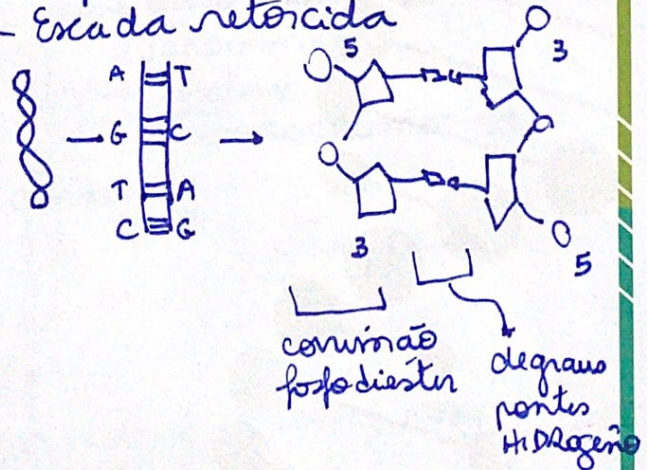 - Escada retorcida
A T
G C
T A
C G
5
3
3
5
corrimão
fosfodiéster
degraus
pontes
HiDRogênio